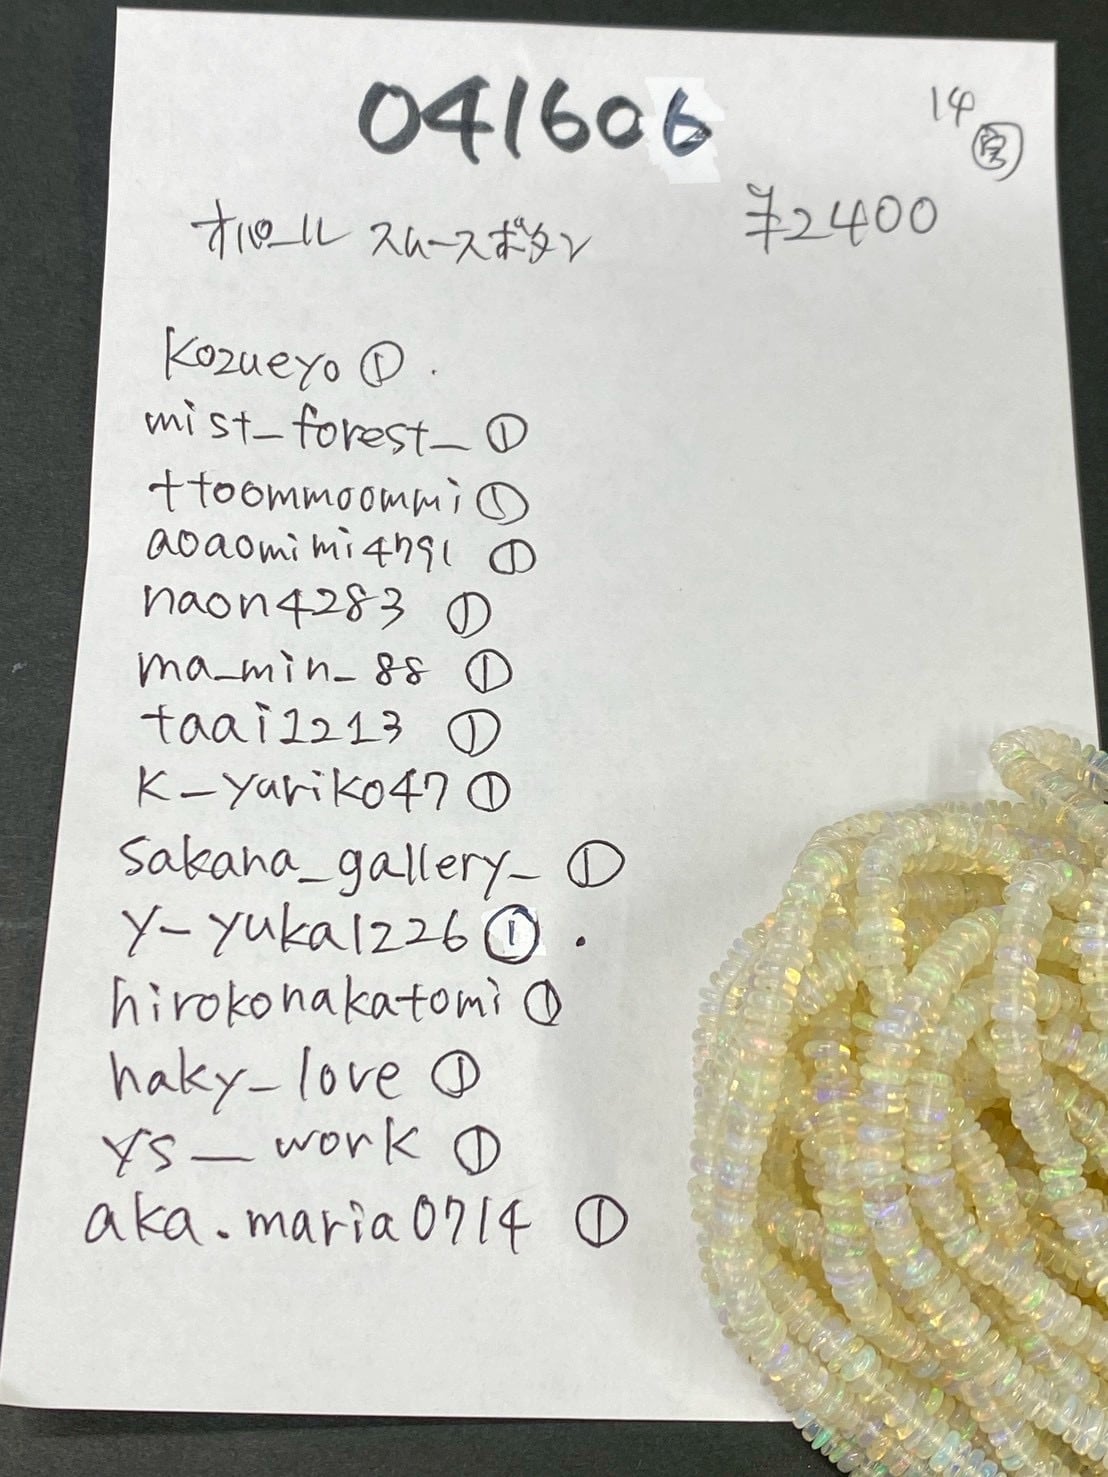 041606
14
宮
オパール スムースボタン
¥2400
kozueyo ①
mist_forest_ ①
ttoommoommi ①
aoaomimi4791 ①
naon4283 ①
ma_min_88 ①
taai1213 ①
k_yariko47 ①
sakana_gallery_ ①
y-yuka1226 ①
hirokonakatomi ①
haky_love ①
ys__work ①
aka.maria0714 ①